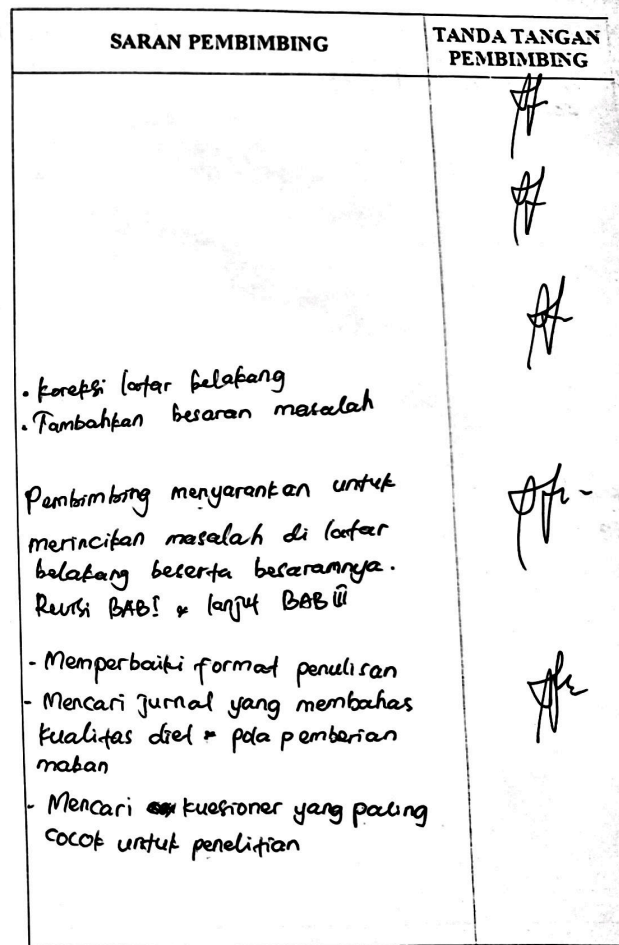 SARAN PEMBIMBING
TANDA TANGAN
PEMBIMBING
. koreksi latar belakang
. Tambahkan besaran masalah
Pembimbing menyarankan untuk
merincikan masalah di latar
belakang beserta besarannya.
Revisi BAB I & lanjut BAB III
- Memperbaiki format penulisan
- Mencari jurnal yang membahas
kualitas diet & pola pemberian
makan
- Mencari kuesioner yang paling
cocok untuk penelitian